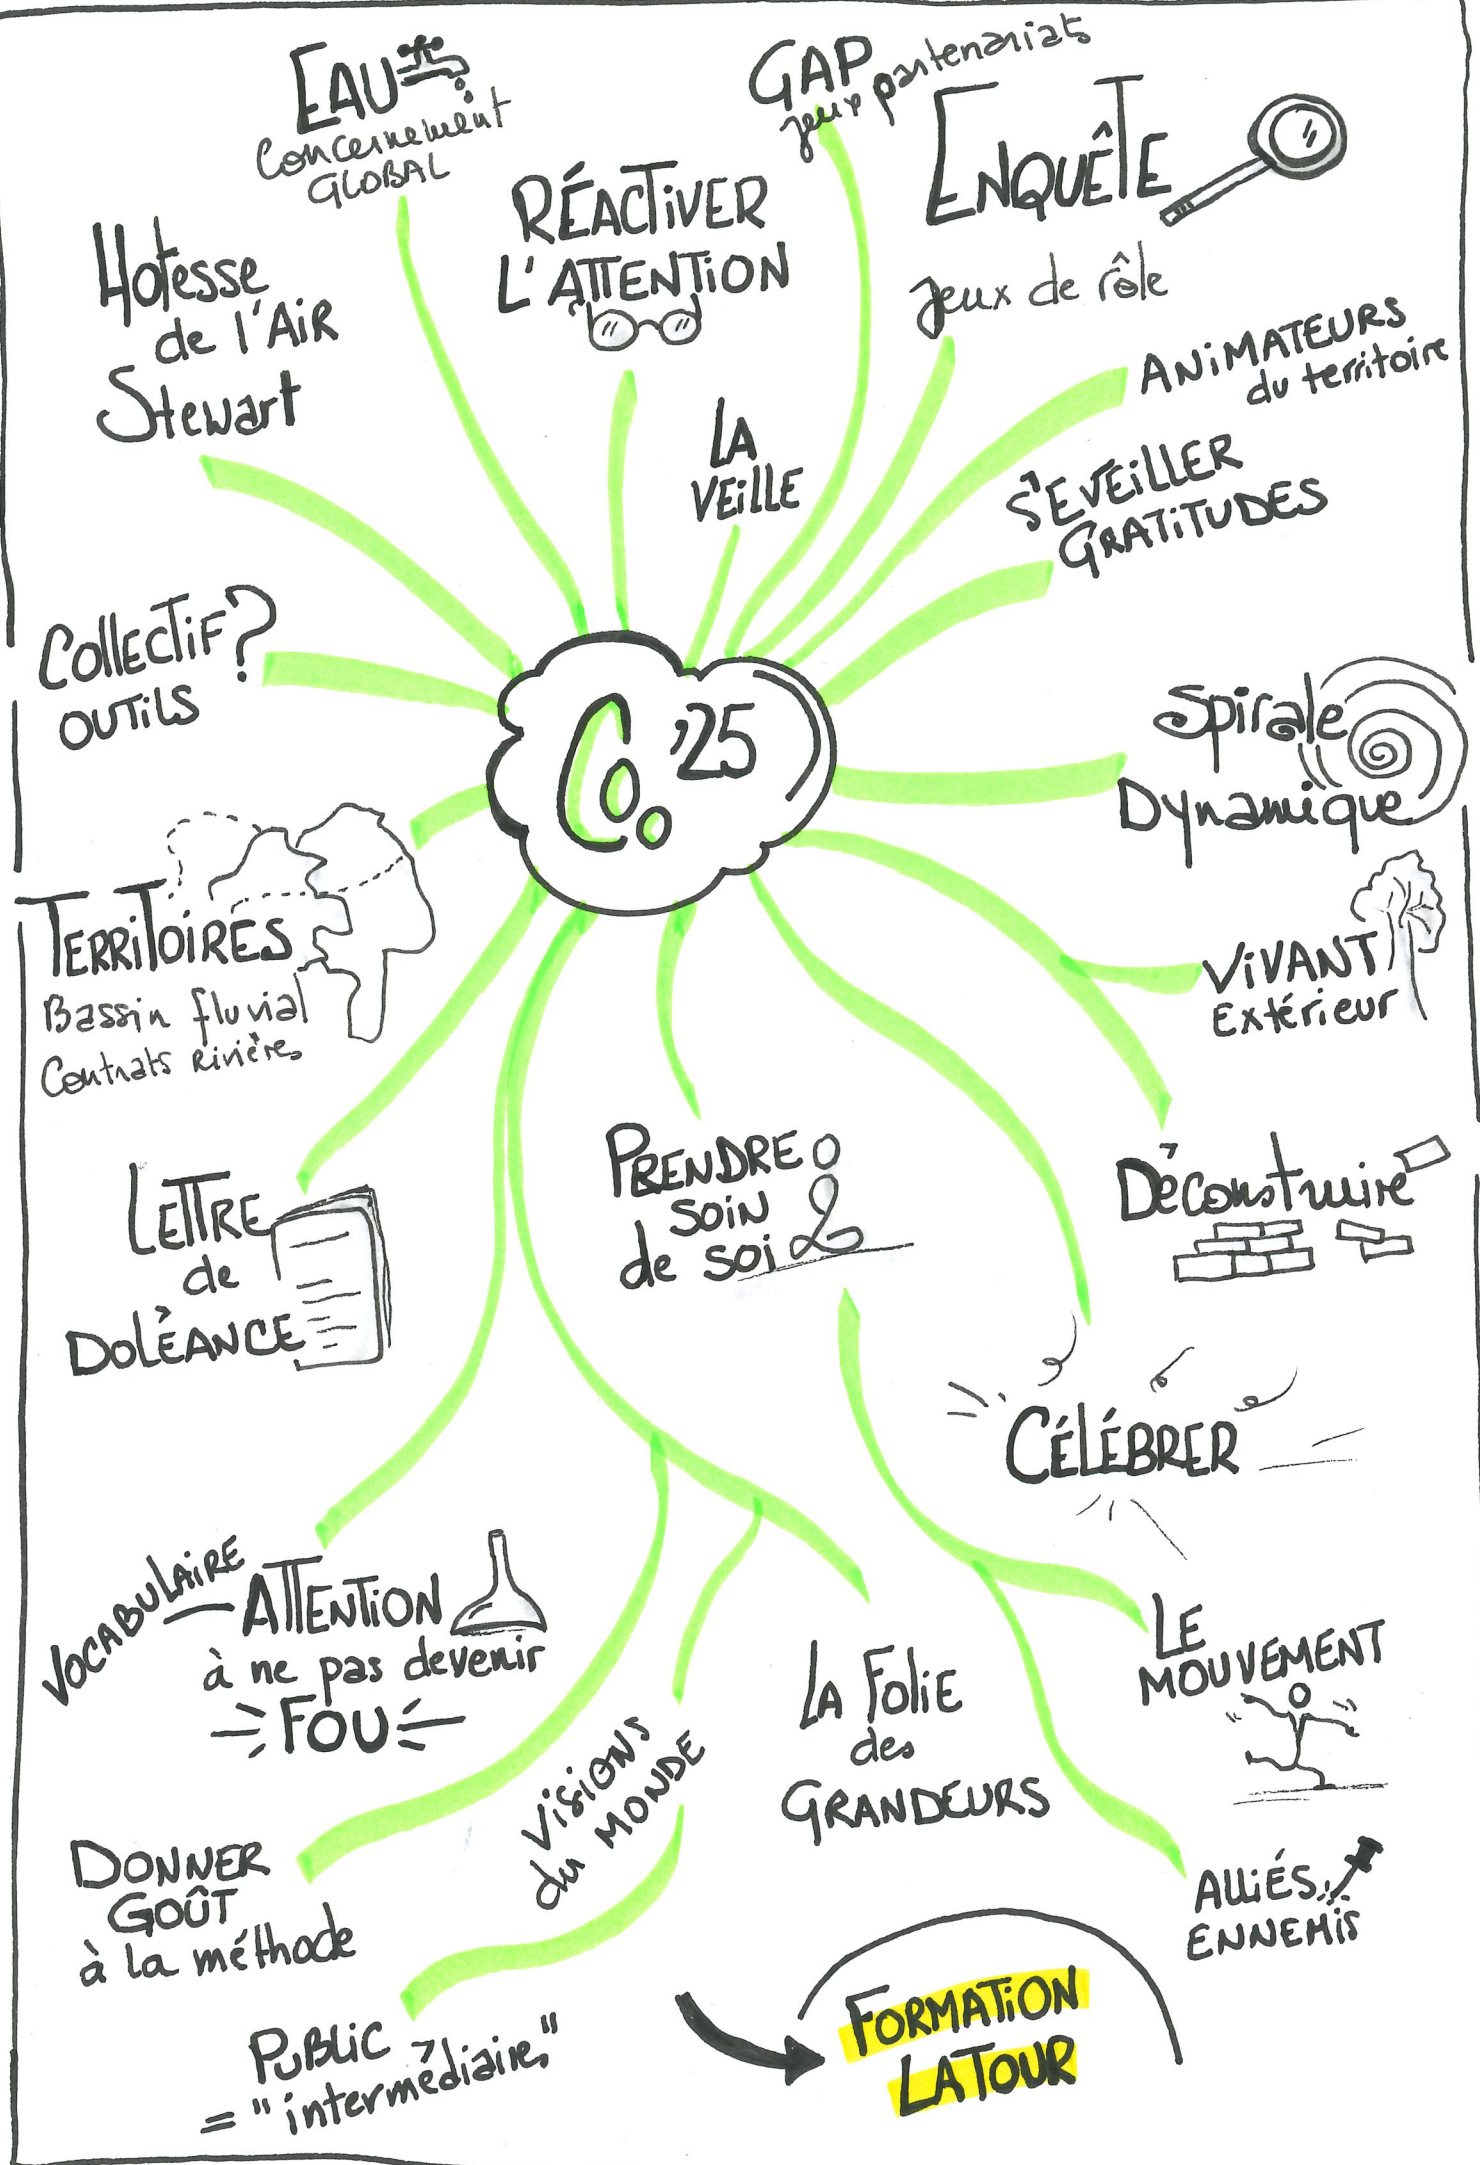 EAU
Concernement
GLOBAL
GAP
jeux partenariats
ENQUÊTE
RÉACTIVER
L'ATTENTION
Hotesse
de l'AiR
Stewart
Jeux de rôle
ANiMATEURS
du territoire
LA
VEiLLE
S'EVEiLLER
GRATiTUDES
COllECTiF?
OUTiLS
Co. '25
Spirale
Dynamique
TERRiTOiRES
Bassin fluvial
Contrats Rivières
ViVANT
Extérieur
LETTRE
de
DOLÉANCE
PRENDRE
SOiN
de soi
Déconstruire
CÉLÉBRER
VOCABULAiRE
ATTENTiON
à ne pas devenir
FOU
LE
MOUVEMENT
LA Folie
des
GRANDEURS
ViSiONS
du MONDE
DONNER
GOÛT
à la méthode
ALLiÉS
ENNEMiS
PUBLiC
= "intermédiaire"
FORMATiON
LATOUR